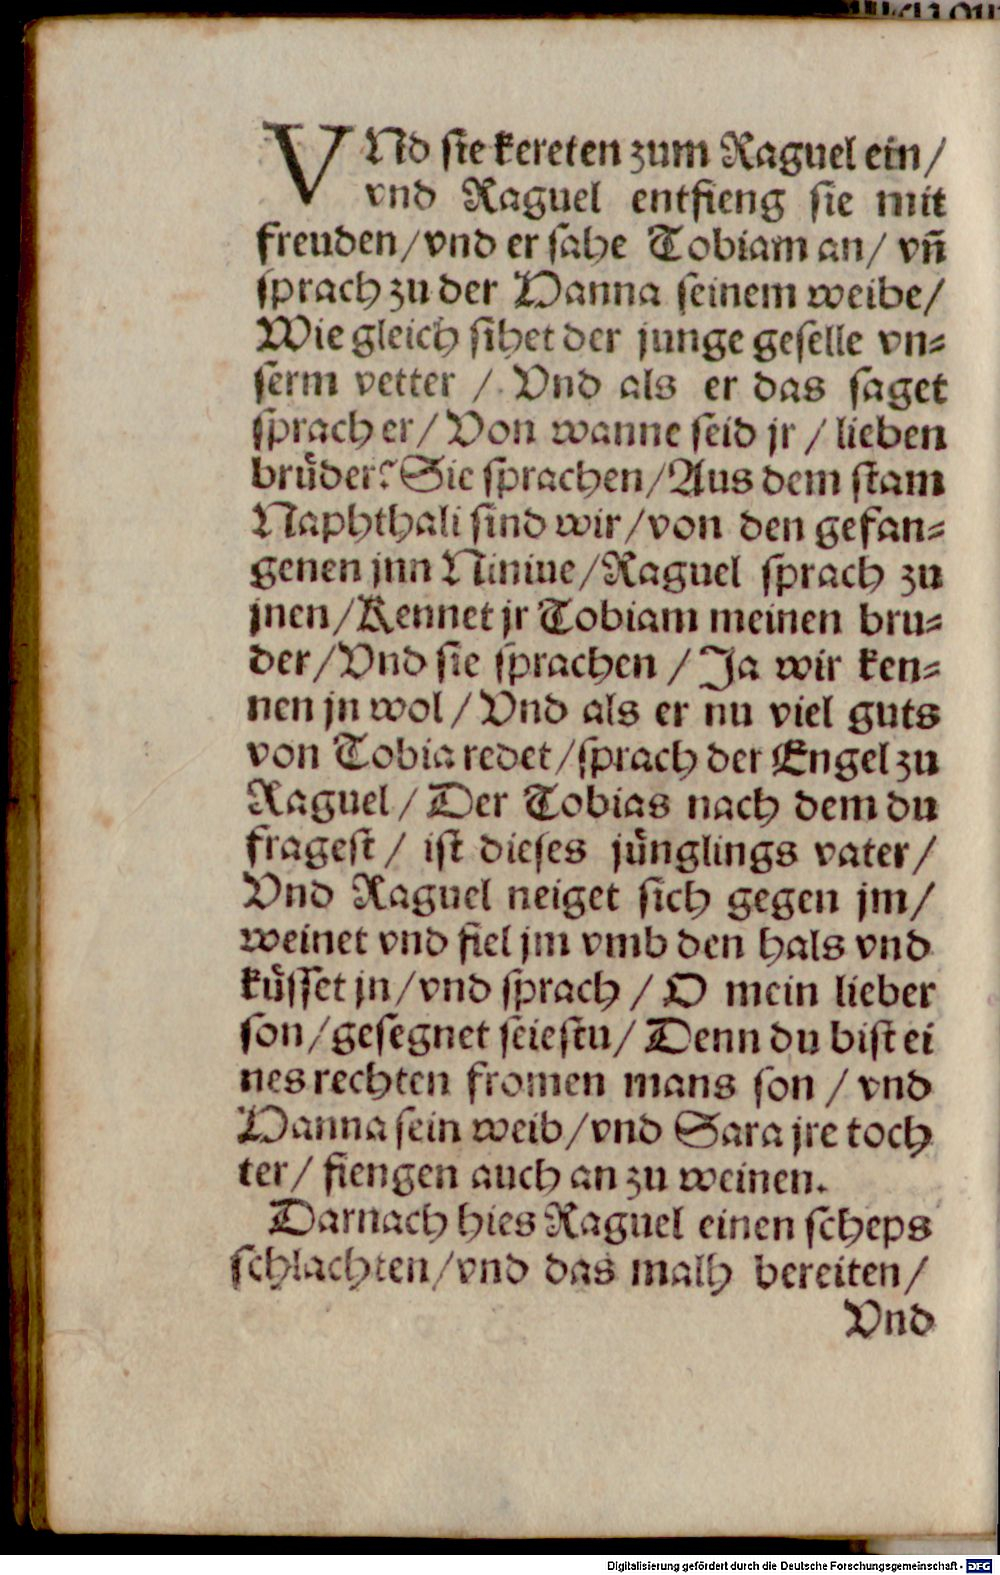 VNd sie kereten zum Raguel ein/
vnd Raguel entfieng sie mit
freuden/vnd er sahe Tobiam an/ vñ
sprach zu der Hanna seinem weibe/
Wie gleich sihet der junge geselle vn=
serm vetter / Vnd als er das saget
sprach er/ Von wanne seid jr / lieben
bruͤder? Sie sprachen/Aus dem stam
Naphthali sind wir/von den gefan=
genen jnn Niniue/Raguel sprach zu
jnen/Kennet jr Tobiam meinen bru=
der/Vnd sie sprachen / Ja wir ken=
nen jn wol / Vnd als er nu viel guts
von Tobia redet/sprach der Engel zu
Raguel / Der Tobias nach dem du
fragest / ist dieses juͤnglings vater/
Vnd Raguel neiget sich gegen jm/
weinet vnd fiel jm vmb den hals vnd
kuͤsset jn/vnd sprach / O mein lieber
son/gesegnet seiestu/ Denn du bist ei
nes rechten fromen mans son / vnd
Hanna sein weib/vnd Sara jre toch
ter/ fiengen auch an zu weinen.
Darnach hies Raguel einen scheps
schlachten/vnd das malh bereiten/
Vnd
Digitalisierung gefördert durch die Deutsche Forschungsgemeinschaft - DFG